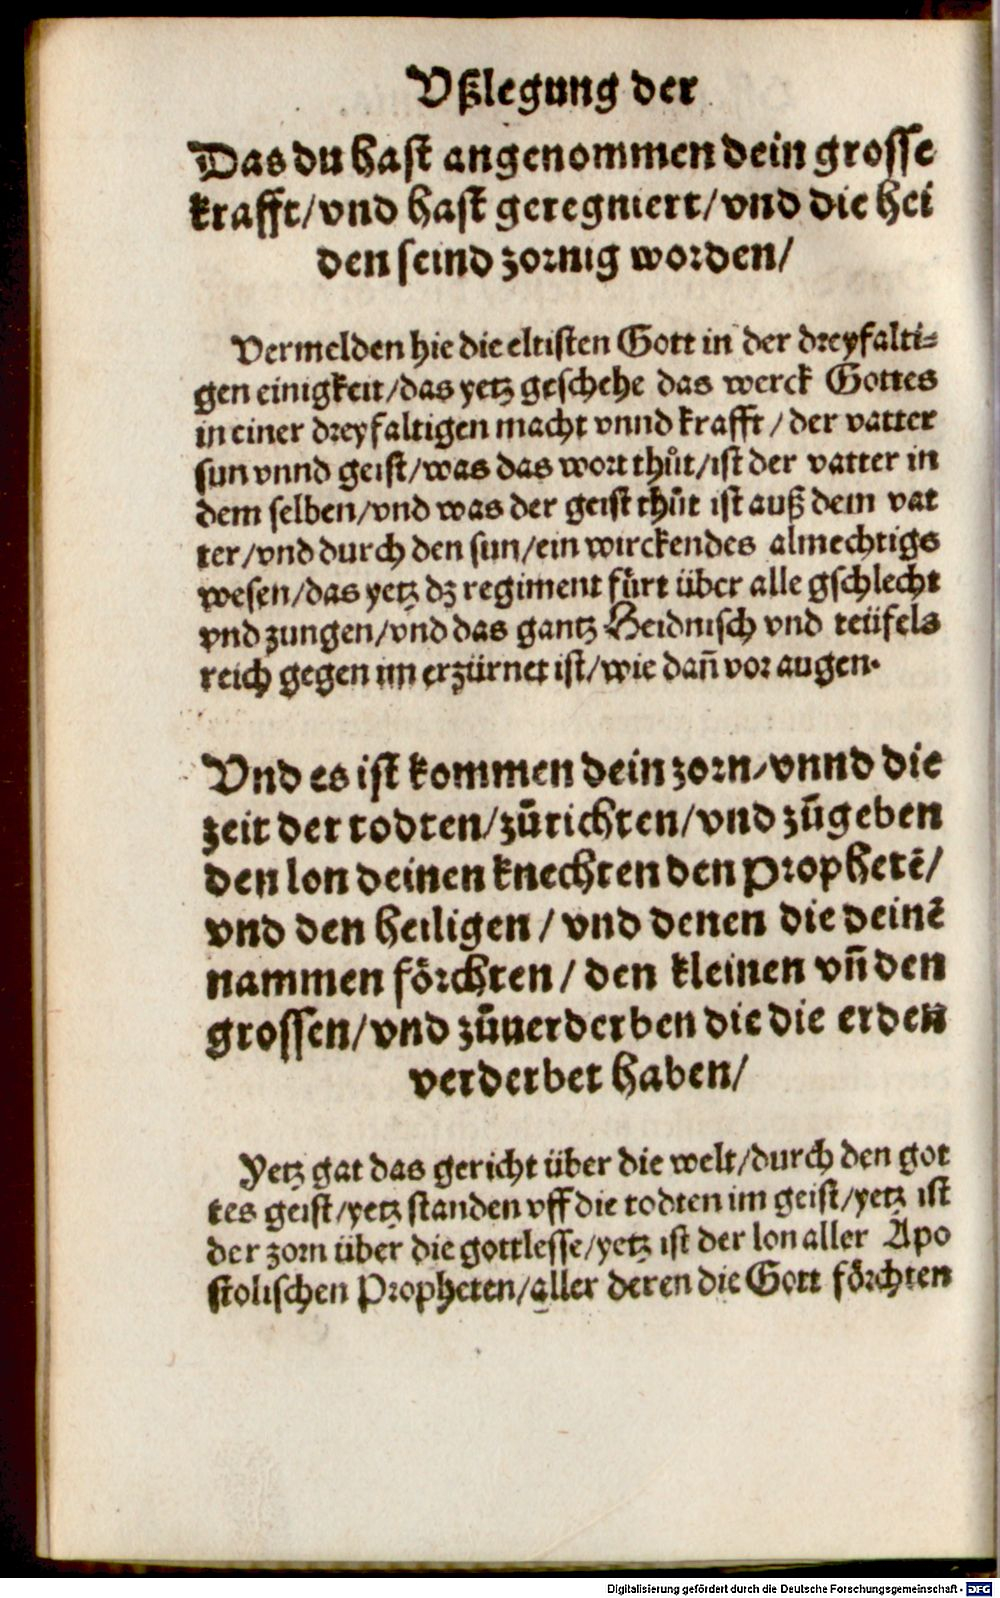 Vßlegung der
Das du hast angenommen dein grosse
krafft/vnd hast geregniert/vnd die hei
den seind zornig worden/
Vermelden hie die eltisten Gott in der dreyfalti-
gen einigkeit/das yetz geschehe das werck Gottes
in einer dreyfaltigen macht vnnd krafft/der vatter
sun vnnd geist/was das wort thůt/ist der vatter in
dem selben/vnd was der geist thůt ist auß dem vat
ter/vnd durch den sun/ein wirckendes almechtigs
wesen/das yetz dz regiment fůrt über alle gschlecht
vnd zungen/vnd das gantz Heidnisch vnd teüfels
reich gegen im erzürnet ist/wie dañ vor augen.
Vnd es ist kommen dein zorn/vnnd die
zeit der todten/zůrichten/vnd zůgeben
den lon deinen knechten den Prophetē/
vnd den heiligen/vnd denen die deinē
nammen förchten/den kleinen vñ den
grossen/vnd zůuerderben die die erden
verderbet haben/
Yetz gat das gericht über die welt/durch den got
tes geist/yetz standen vff die todten im geist/yetz ist
der zorn über die gottlesse/yetz ist der lon aller Apo
stolischen Propheten/aller deren die Gott förchten
Digitalisierung gefördert durch die Deutsche Forschungsgemeinschaft - DFG